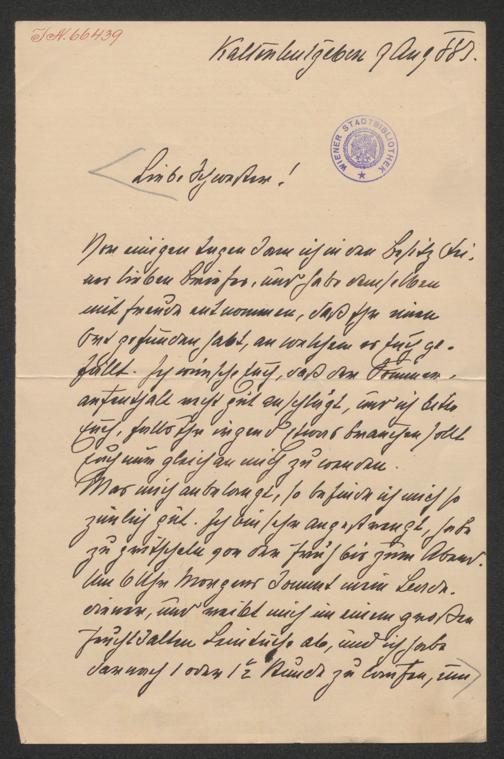 I.N. 66439
Kaltenleutgeben 9 Aug 883.
WIENER STADTBIBLIOTHEK
Liebe Schwester!
Vor einigen Tagen kam ich in den Besitz Dei-
nes lieben Briefes, und habe demselben
mit Freude entnommen, daß Ihr einen
Ort gefunden habt, an welchem es Euch ge-
fällt. Ich wünsche Euch, daß der Sommer-
aufenthalt recht gut anschlägt, und ich bitte
Euch, falls Ihr irgend etwas brauchen sollt
Euch nur gleich an mich zu wenden.
Was mich anbelangt, so befinde ich mich so
zimlich gut. Ich bin sehr angestrengt, habe
zu von der Früh bis zum Abend.
Um 6 Uhr Morgens kommt mein Bade-
diener, und reibt mich in einem großen
feuchtkalten Leintuche ab, und ich habe
darnach 1 oder 1½ Stunde zu laufen, um